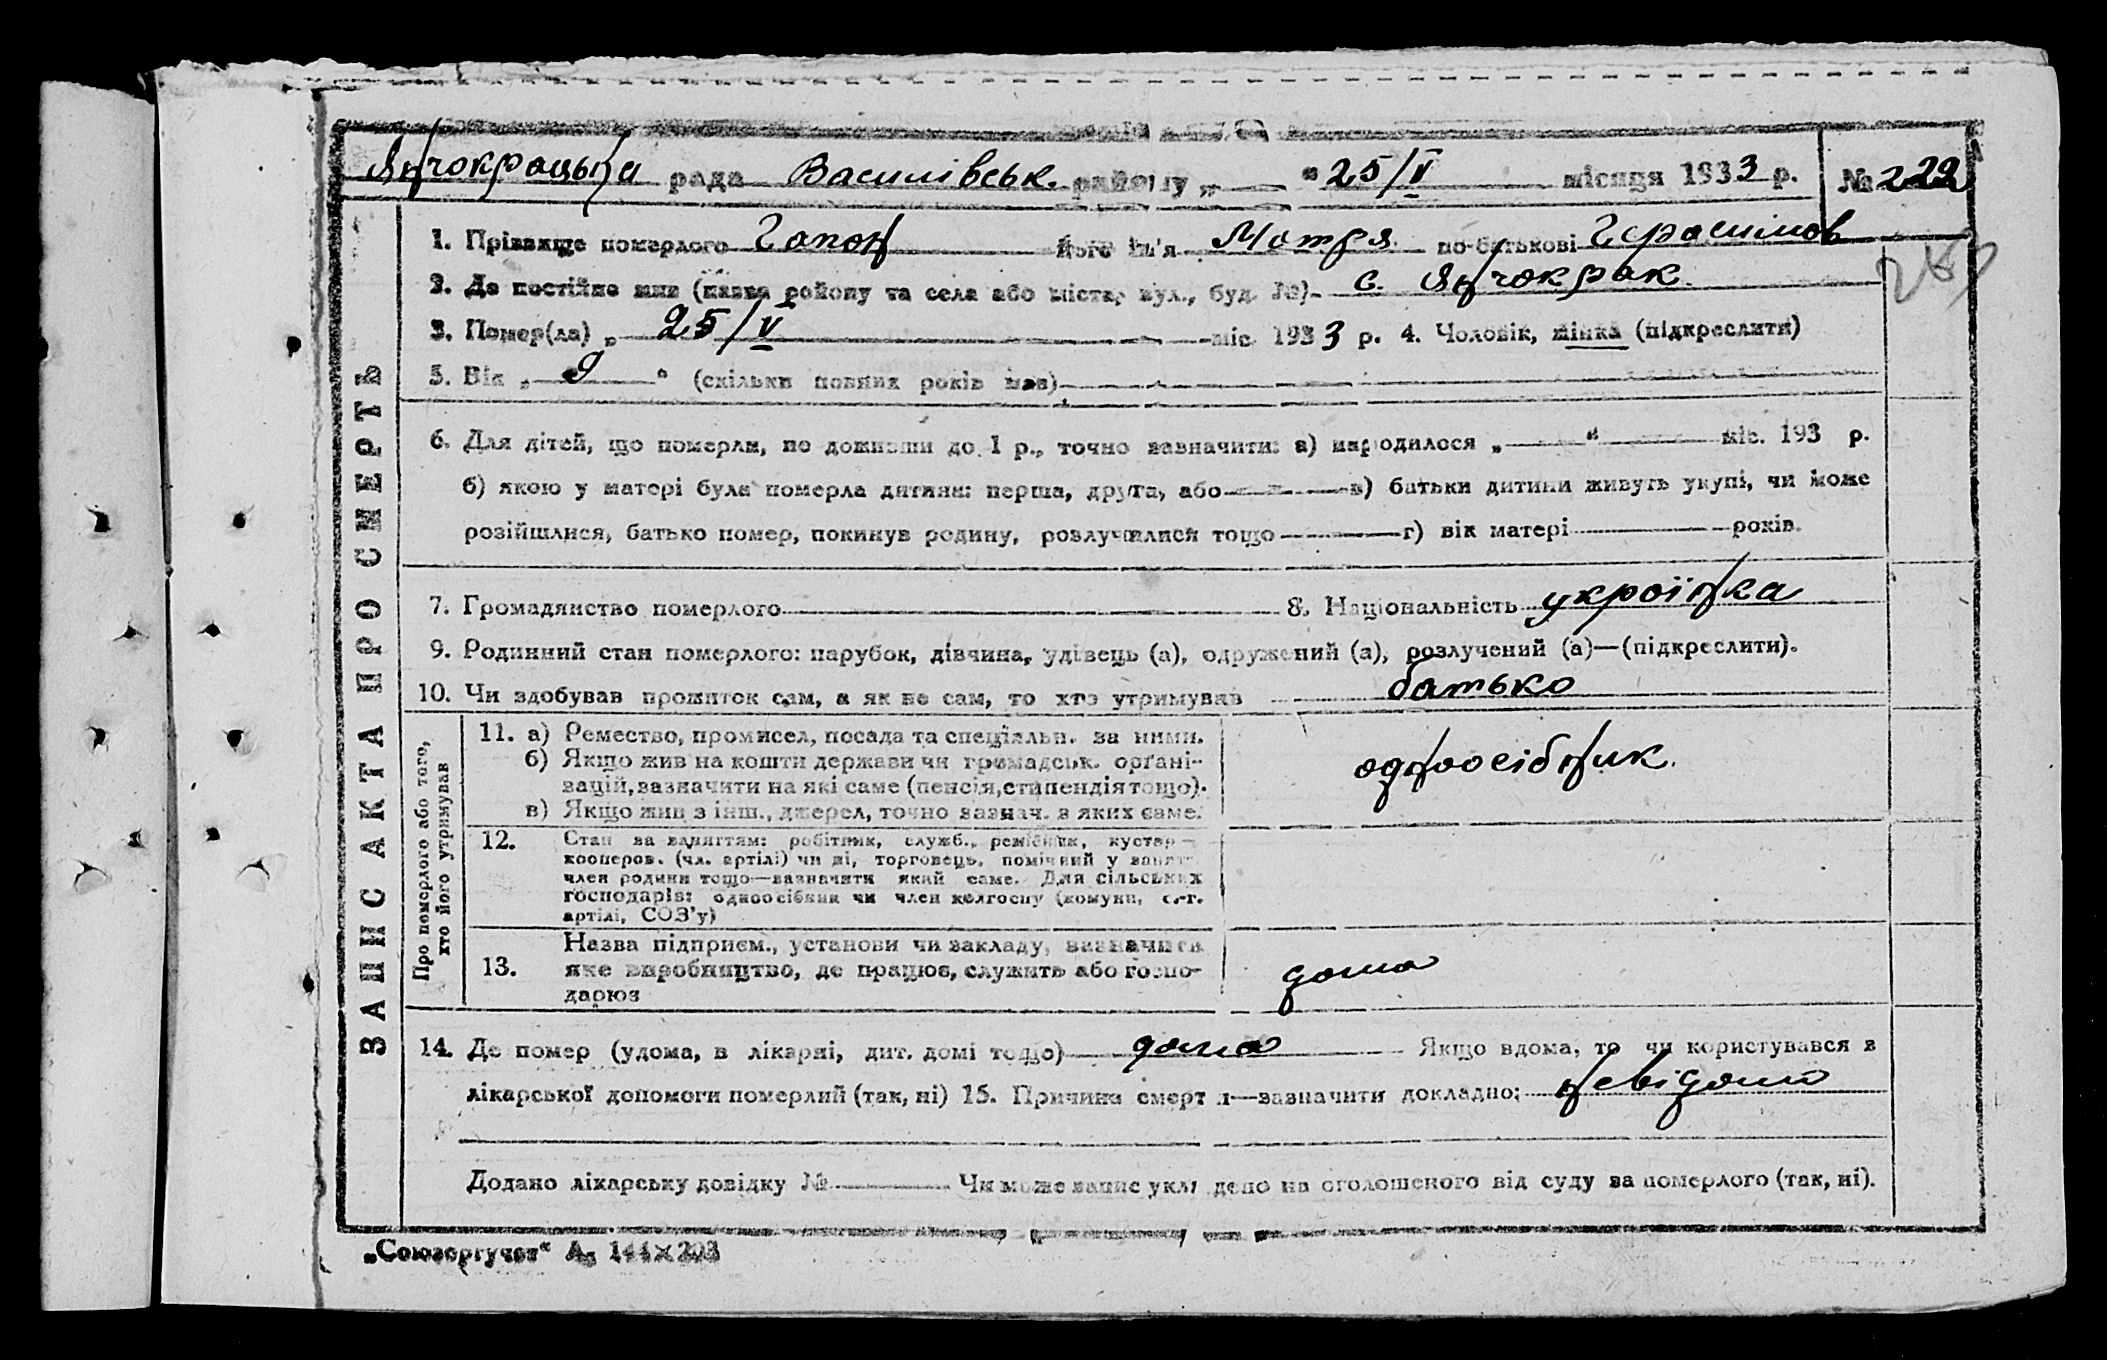 Янчокрацька рада Василівськ. району „ “ 25/V місяця 1933 р. № 229
1. Прізвище померлого Гапон його ім'я Мотря по-батькові Герасимов
2. Де постійно жив (назва району та села або міста, вул., буд. №) с. Янчокрак.
3. Помер(ла) „ 25/V міс. 1933 р. 4. Чоловік, жінка (підкреслити)
5. Вік „ 9 “ (скільки повних років мав)
6. Для дітей, що померли, не доживши до 1 р., точно зазначити: а) народилося „ “ міс. 193 р.
б) якою у матері була померла дитина: перша, друга, або в) батьки дитини живуть укупі, чи може
розійшлися, батько помер, покинув родину, розлучилися тощо г) вік матері років.
7. Громадянство померлого 8. Національність українка
9. Родинний стан померлого: парубок, дівчина, удівець (а), одружений (а), розлучений (а)—(підкреслити).
10. Чи здобував прожиток сам, а як не сам, то хто утримував батько
ЗАПИС АКТА ПРО СМЕРТЬ
Про померлого або того, хто його утримував
11. а) Ремество, промисел, посада та спеціяльн. за ними.
б) Якщо жив на кошти держави чи громадськ. органі-
зацій, зазначити на які саме (пенсія, стипендія тощо).
в) Якщо жив з інш., джерел, точно зазнач. з яких саме.
одноосібник.
12. Стан за заняттям: робітник, служб., ремісник, кустар
кооперов. (чл. артілі) чи ні, торговець, помічний у занят.
член родини тощо—зазначити який саме. Для сільських
господарів: одноосібник чи член колгоспу (комуни, с.-г.
артілі, СОЗ'у)
13. Назва підприєм., установи чи закладу, зазначити
яке виробництво, де працює, служить або госпо-
дарює
дома
14. Де помер (удома, в лікарні, дит. домі тощо) дома Якщо вдома, то чи користувався з
лікарської допомоги померлий (так, ні) 15. Причина смерти—зазначити докладно: невідомо
Додано лікарську довідку № Чи може запис укладено на оголошеного від суду за померлого (так, ні).
„Союзоргучет“ А₅ 144×203